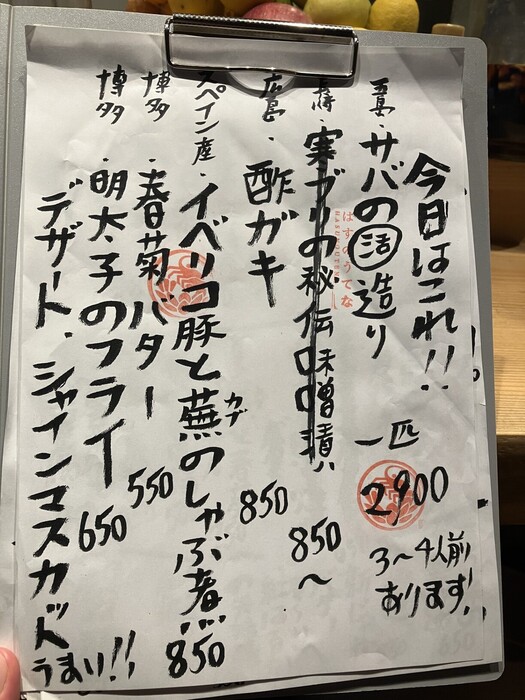 今日はこれ!!
五島・サバの活造り
一匹
2900
3〜4人前
あります!!
長崎・寒ブリの秘伝味噌漬
850〜
広島・酢ガキ
850
スペイン産・イベリコ豚と蕪のしゃぶ煮…
カブ
850
博多・春菊バター
550
博多・明太子のフライ
650
デザート・シャインマスカット
うまい!!
はすのうてな